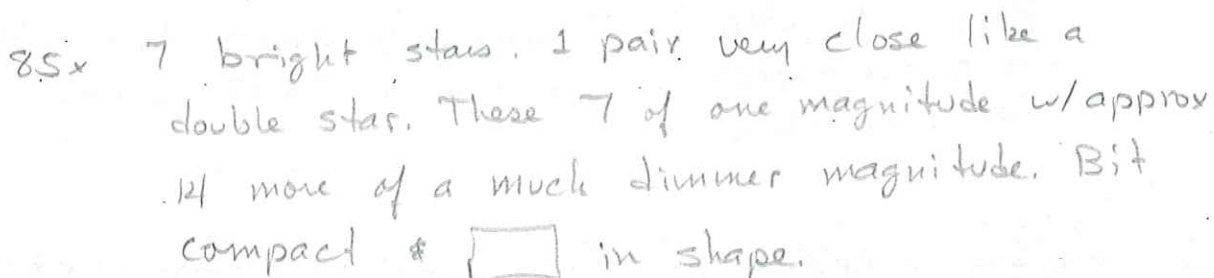 85x 7 bright stars. 1 pair very close like a
double star. These 7 of one magnitude w/ approx
14 more of a much dimmer magnitude. Bit
compact & in shape.